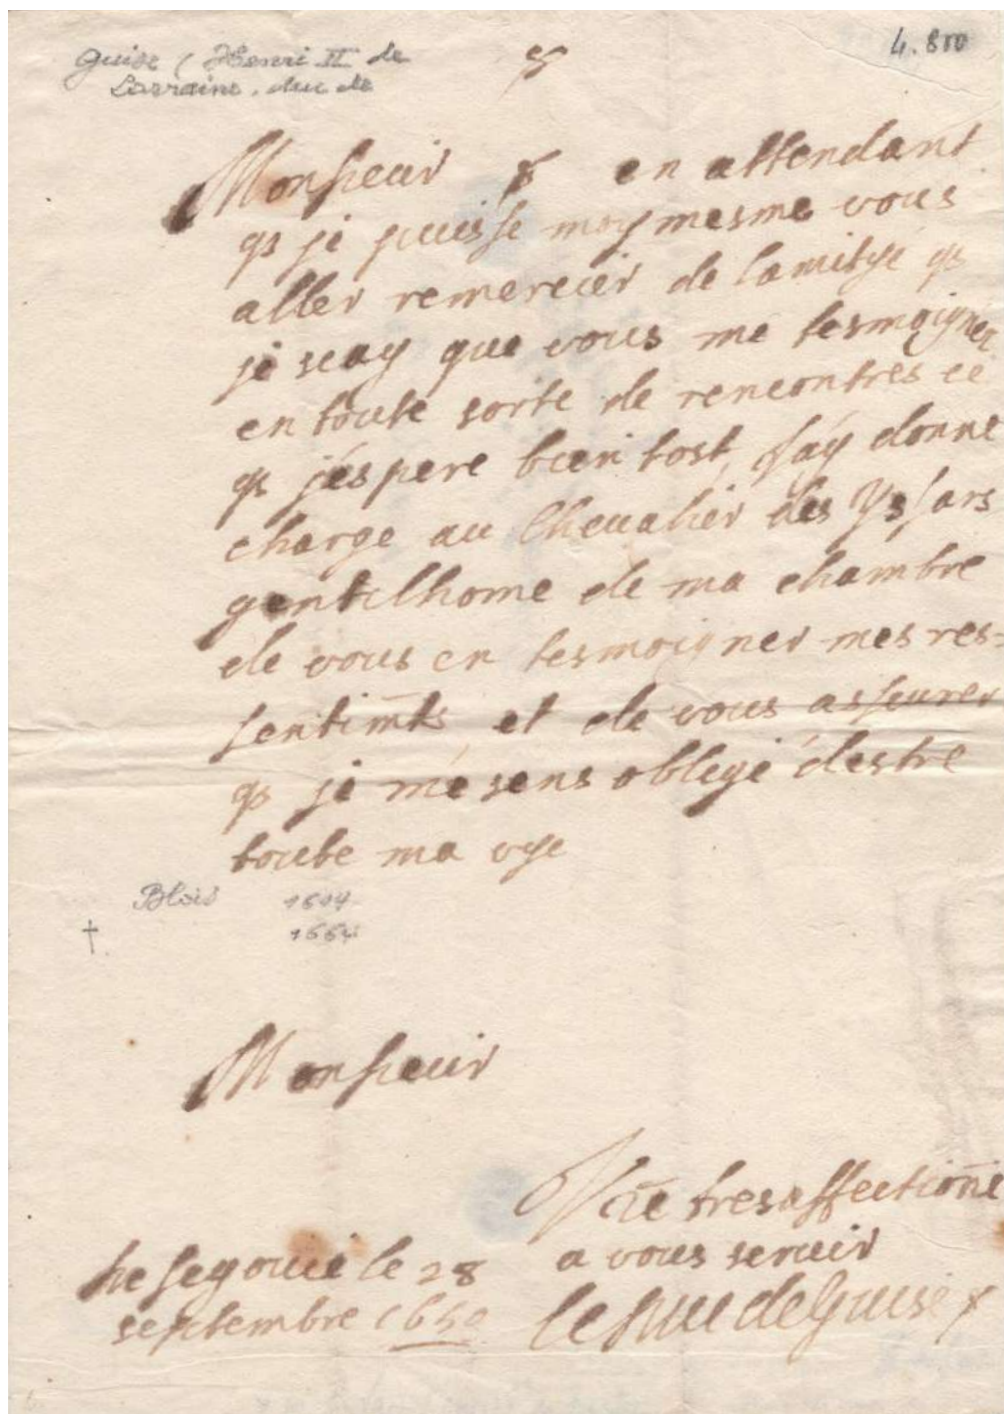 Guise (Henri II de
Lorraine, duc de
4.800
Monsieur en attendant
qs je puisse moy mesme vous
aller remercier de lamitye qs
je scay que vous me tesmoignez
en toute sorte de rencontres ce
qs jéspere bien tost, Jáy donné
charge au Chevalier des
gentilhome de ma chambre
de vous en tesmoigner mes res-
sentimts et de vous asseurer
qs je mésens oblegé déstre
toute ma vye
Blois 1614
† 1664
Monsieur
Vre tresaffectioné
a vous servir
De segovie le 28
septembre 1650
le Duc de Guise